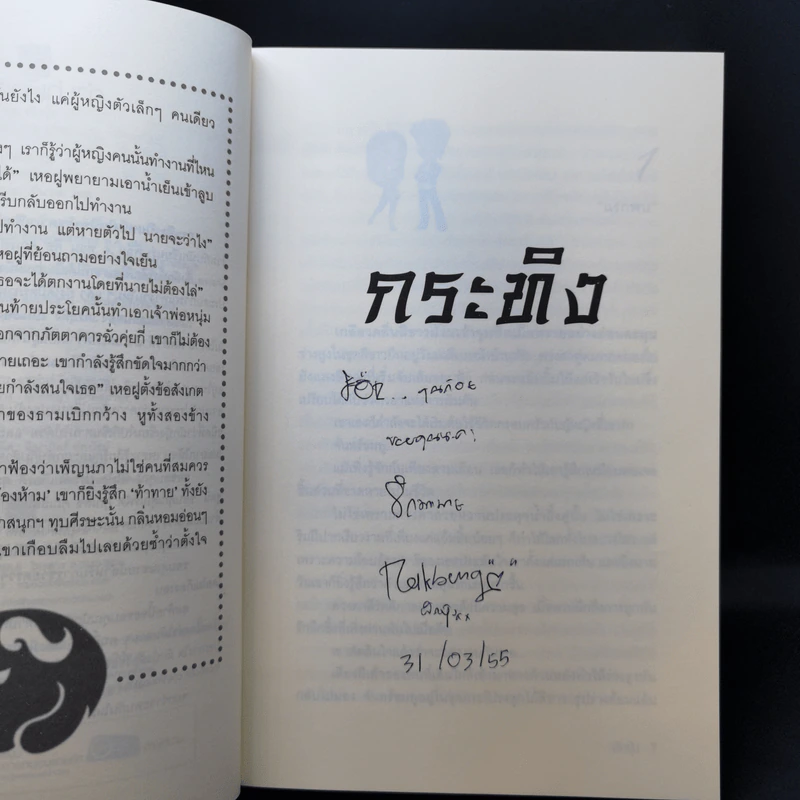 นยังไง แค่ผู้หญิงตัวเล็กๆ คนเดียว
งๆ เราก็รู้ว่าผู้หญิงคนนั้นทำงานที่ไหน
ได้” เหอฝูพยายามเอาน้ำเย็นเข้าลูบ
รีบกลับออกไปทำงาน
ปทำงาน แต่หายตัวไป นายจะว่าไง”
หอฝูที่ย้อนถามอย่างใจเย็น
ธอจะได้ตกงานโดยที่นายไม่ต้องไล่”
นท้ายประโยคนั้นทำเอาเจ้าพ่อหนุ่ม
อกจากภัตตาคารฉั่วคุ่ยกี่ เขาก็ไม่ต้อง
ายเถอะ เขากำลังรู้สึกขัดใจมากกว่า
ยกำลังสนใจเธอ” เหอฝูตั้งข้อสังเกต
าของธามเบิกกว้าง หูทั้งสองข้าง
าฟ้องว่าเพ็ญนภาไม่ใช่คนที่สมควร
องห้าม’ เขาก็ยิ่งรู้สึก ‘ท้าทาย’ ทั้งยัง
าสนุกฯ ทุบศีรษะนั้น กลิ่นหอมอ่อนๆ
เขาเกือบลืมไปเลยด้วยซ้ำว่าตั้งใจ
กระทิง
31/03/55